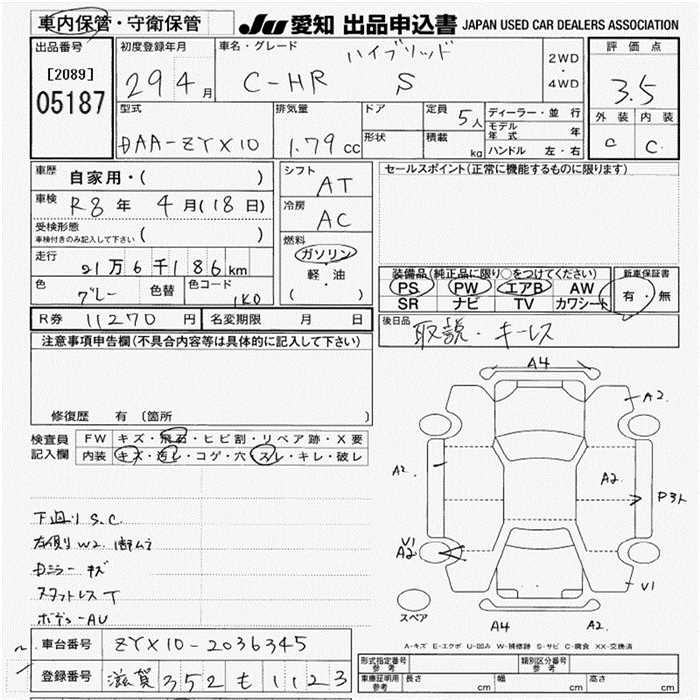 車内保管・守衛保管
JU 愛知 出品申込書 JAPAN USED CAR DEALERS ASSOCIATION
出品番号 [2089] 05187
初度登録年月 29 4月
車名・グレード ハイブリッド C-HR S
2WD・4WD
評価点 3.5
外装 内装
C C
型式 DAA-ZYX10
排気量 1.79 cc
ドア
形状
定員 5人
積載 kg
ディーラー・並行
モデル年式 年
ハンドル 左・右
車歴 自家用・( )
車検 R8年 4月(18日)
受検形態 車検付きのみ記入して下さい ( )
走行 21万6千186km
色 グレー 色替 色コード 1K0
シフト AT
冷房 AC
燃料 ガソリン
軽・油
( ・ )
セールスポイント(正常に機能するものに限ります)
装備品(純正品に限り○をつけてください)
PS PW エアB AW
SR ナビ TV カワシート
新車保証書
有・無
R券 11270 円 名変期限 月 日
後日品 取説・キーレス
注意事項申告欄(不具合内容等は具体的に記入して下さい)
修復歴 有 (箇所
検査員記入欄
FW キズ・飛石・ヒビ割・リペア跡・X要
内装 キズ・汚レ・コゲ・穴・スレ・キレ・破レ
下廻り S.C.
右側り W2
Dミラー キズ
スタットレス T
ボデー AU
A4
A2.
A2.
A2.
V1
A2
V1
A4 A2.
スペア
A-キズ E-エクボ U-凹み W-補修跡 S-サビ C-腐食 XX-交換済
車台番号 ZYX10-2036345
登録番号 滋賀352も1123
形式指定番号 参考 類別区分番号 参考
車庫証明用 参考 長さ cm 幅 cm 高さ cm